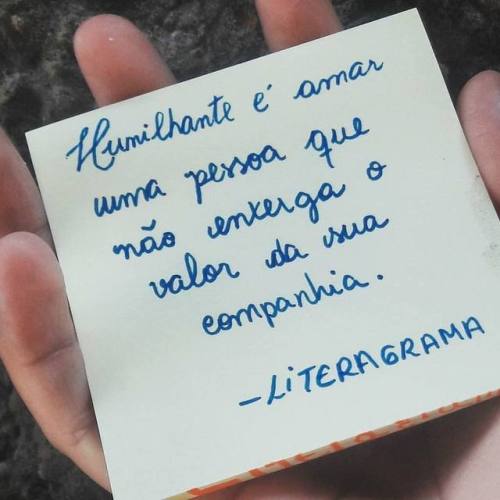 Humilhante é amar
uma pessoa que
não enxerga o
valor da sua
companhia.
-LiTERAGRAMA